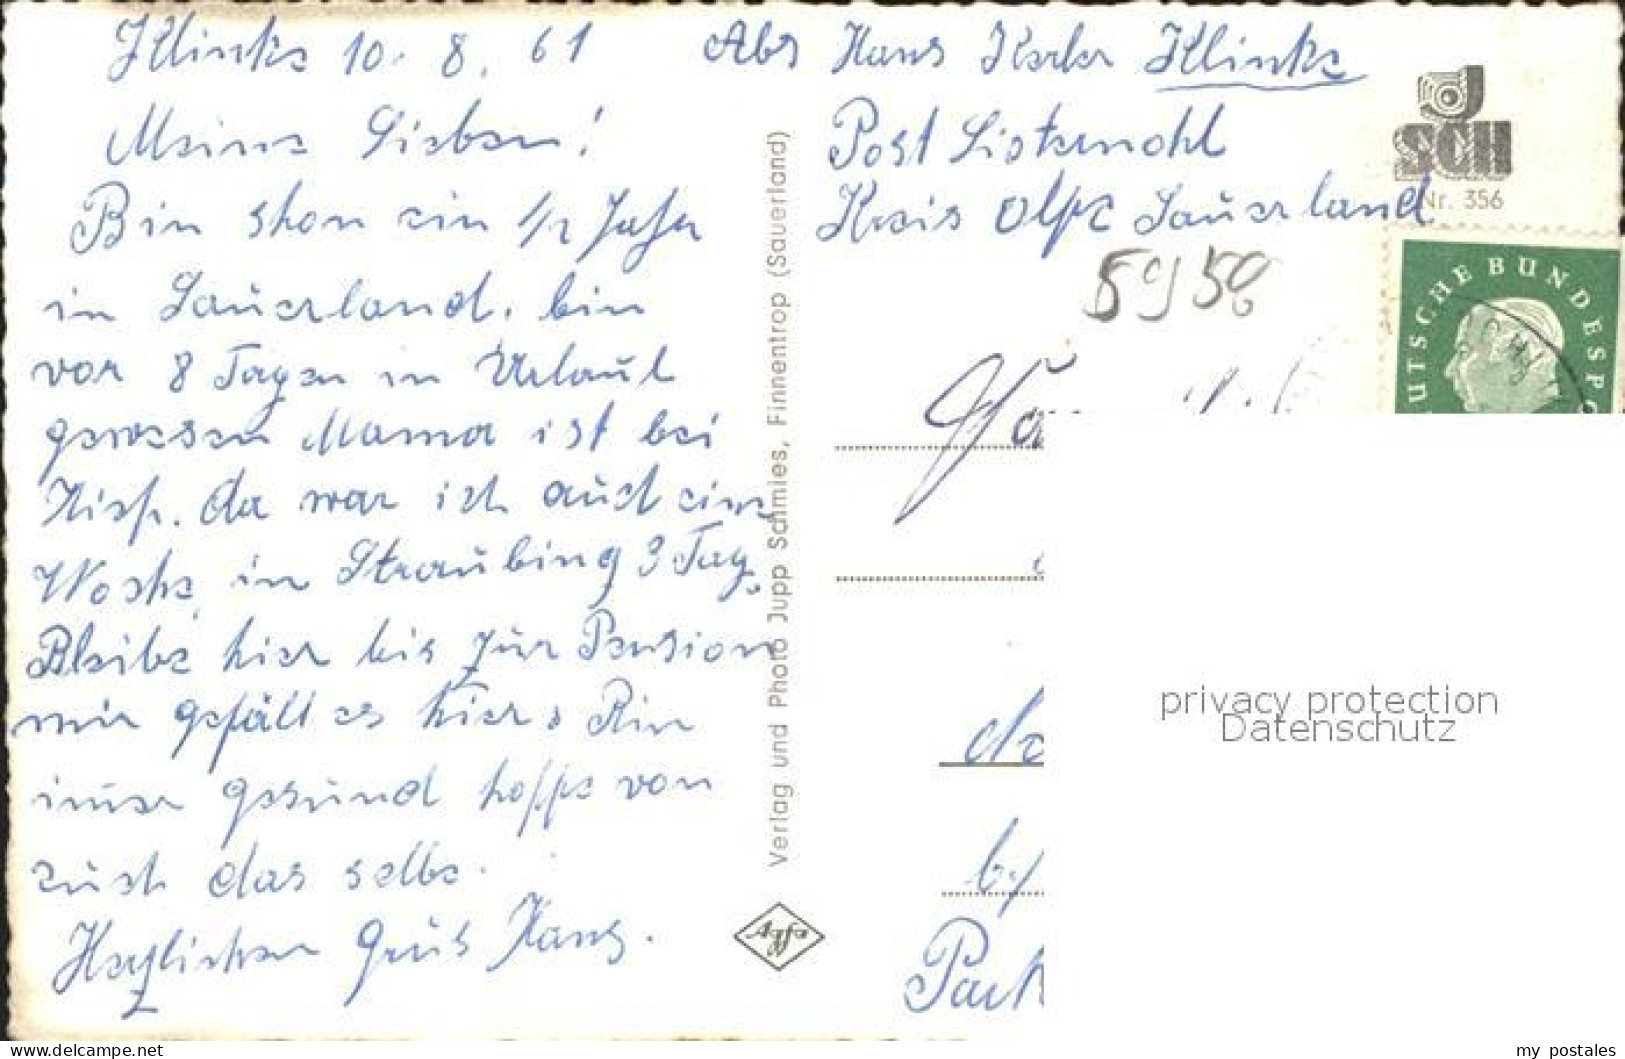 Klinke 10. 8. 61
Meine Lieben!
Bin shon ein 1/2 Jahr
in Sauerland. bin
vor 8 Tagen in Urlaub
gewesen Mama ist bei
da war ich auch eine
Woche in Straubing 3 Tag.
Bleibe hier bis zur Pension
mir gefällt es hier. Bin
imer gesund hoffe von
euch das selbe.
Herzlichen Grüs Hans.
Abs Hans Klinke
Post Listernohl
Kreis Olpe Sauerland
5950
SCH
Nr. 356
DEUTSCHE BUNDESPO
Verlag und Photo Jupp Schmies, Finnentrop (Sauerland)
Agfa
privacy protection
Datenschutz
my postales
https://www.delcampe.net